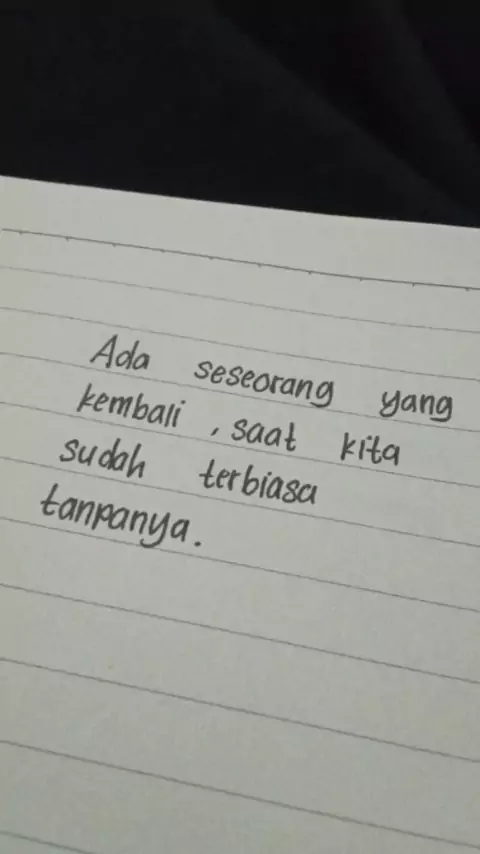 Ada seseorang yang
kembali , saat kita
sudah terbiasa
tanpanya.